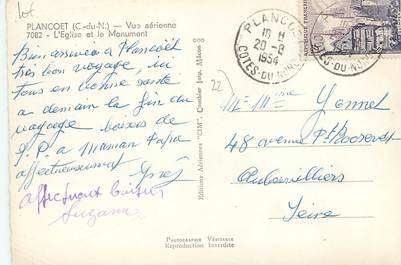 lot
PLANCOET (C.-du-N.) — Vue aérienne
7082 - L'Eglise et le Monument
Bien arrivée à Plancoët
très bon voyage, ici
tous en bonne santé
a demain la fin du
voyage baisers de
J. P. a Maman Papa
affectueusement
affectueux baisers
Suzanne
Editions Aériennes "CIM" Combier Imp. Macon
PHOTOGRAPHIE VÉRITABLE
Reproduction Interdite
PLANCOET
18 H
20 -8
1954
COTES-DU-NORD
22
Mr Mme Yonnet
48 avenue Pt Roosevelt
Aubervilliers
Seine